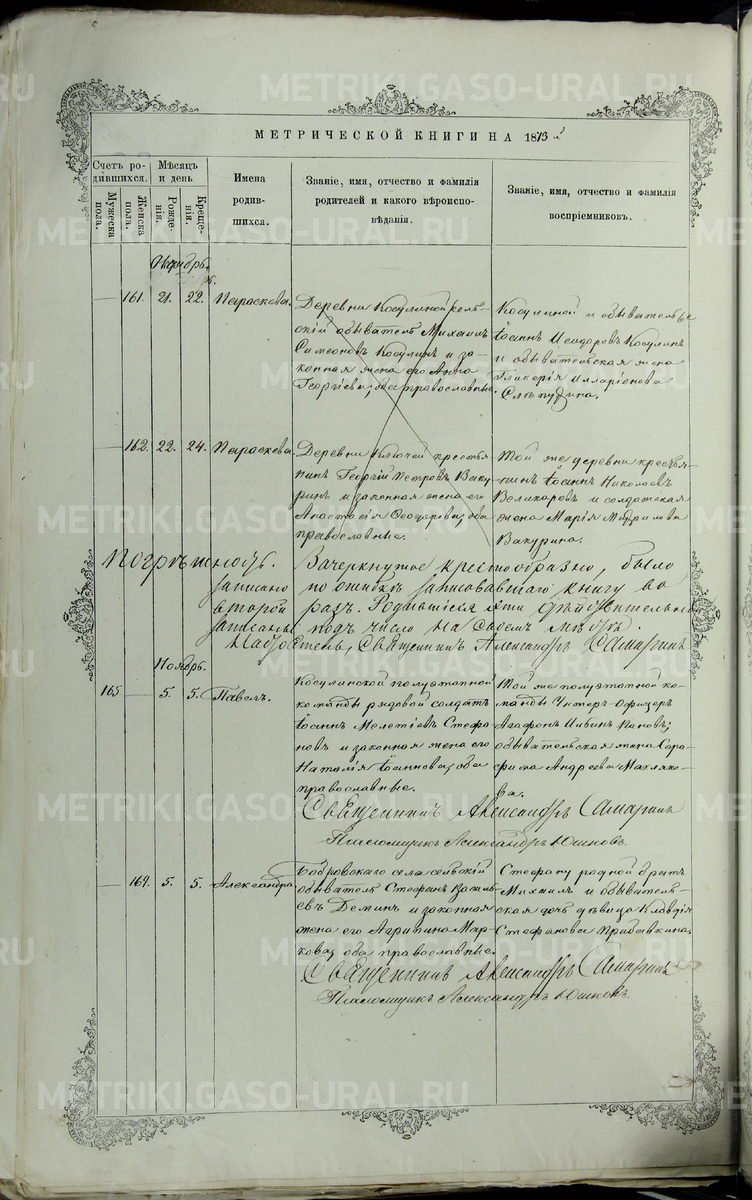 METRIKI.GASO-URAL.RU
МЕТРИЧЕСКОЙ КНИГИ НА 1873
Счетъ ро-
дившихся.
Мужеска
пола.
Женска
пола.
Мѣсяцъ
и день
Рожде-
нія.
Креще-
нія.
Имена
родив-
шихся.
Званіе, имя, отчество и фамилія
родителей и какого вѣроиспо-
вѣданія.
Званіе, имя, отчество и фамилія
воспріемниковъ.
Октябрь.
161. 21. 22. Параскева.
Деревни Косулиной сель-
скій обыватель Михаилъ
Симеоновъ Косулинъ и за-
конная жена его Анна
Георгіева; оба православные.
Косулиной и обыватель
Іоаннъ Исидоровъ Косулинъ
и обывательская жена
Гликерія Илларіонова
162. 22. 24. Параскева.
Деревни Ключей крестья-
нинъ Георгій Петровъ Ваку-
ринъ и законная жена его
Анастасія Ѳеодорова; оба
православные.
Той же деревни крестья-
нинъ Іоаннъ Николаевъ
и солдатская
жена Марія Михаилова
Вакурина.
Погрѣшность. Зачеркнутое крестообразно, было
записано по ошибкѣ записовавшаго книгу во
второй разъ. Родившіяся дѣйствительно
записаны подъ число на своемъ мѣстѣ.
Настоятель, Священникъ Александръ Самаринъ
Ноябрь.
165 — 5. 5. Павелъ.
Косулинской полуэтапной
команды рядовой солдатъ
Іоаннъ Мелетіевъ Стефа-
новъ и законная жена его
Наталія Іоаннова; оба
православные.
Той же полуэтапной ко-
манды Унтеръ-Офицеръ
Агафонъ Пановъ;
обывательская жена Сера-
фима Андреева Махляко-
ва.
Священникъ Александръ Самаринъ
Псаломщикъ Александръ Юшковъ.
— 169. 5. 5. Александра
Бобровскаго села сельскій
обыватель Стефанъ Василь-
евъ Деминъ и законная
жена его Агрипина Мар-
кова; оба православные.
Стефану родной братъ
Михаилъ и обыватель-
ская дочь дѣвица Клавдія
Стефанова Прибавкина.
Священникъ Александръ Самаринъ
Псаломщикъ Александръ Юшковъ.